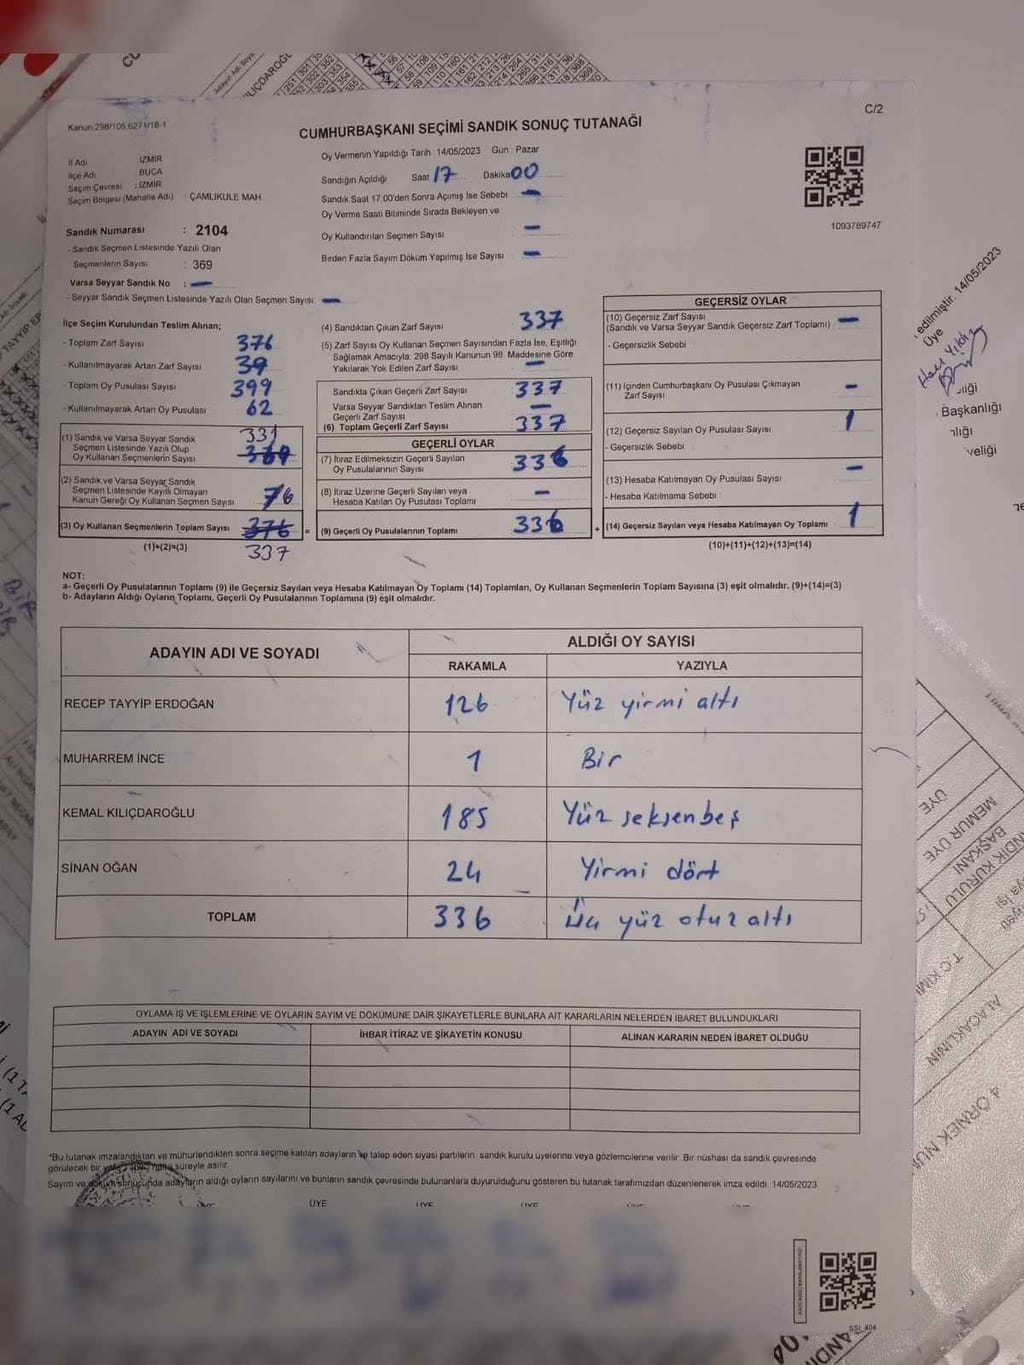 C/2
Kanun:298/105,6271/18-1
CUMHURBAŞKANI SEÇİMİ SANDIK SONUÇ TUTANAĞI
İl Adı İZMİR
İlçe Adı BUCA
Seçim Çevresi : İZMİR
Seçim Bölgesi (Mahalle Adı) ÇAMLIKULE MAH.
Sandık Numarası : 2104
- Sandık Seçmen Listesinde Yazılı Olan
Seçmenlerin Sayısı : 369
Varsa Seyyar Sandık No : -
- Seyyar Sandık Seçmen Listesinde Yazılı Olan Seçmen Sayısı: -
Oy Vermenin Yapıldığı Tarih :14/05/2023 Gün : Pazar
Sandığın Açıldığı Saat 17 Dakika 00
Sandık Saat 17.00'den Sonra Açımış İse Sebebi -
Oy Verme Saati Bitiminde Sırada Bekleyen ve
Oy Kullandırılan Seçmen Sayısı -
Birden Fazla Sayım Döküm Yapılmış İse Sayısı -
1093789747
İlçe Seçim Kurulundan Teslim Alınan;
- Toplam Zarf Sayısı 376
- Kullanılmayarak Artan Zarf Sayısı 39
- Toplam Oy Pusulası Sayısı 399
- Kullanılmayarak Artan Oy Pusulası 62
(1) Sandık ve Varsa Seyyar Sandık
Seçmen Listesinde Yazılı Olup
Oy Kullanan Seçmenlerin Sayısı 331 369
(2) Sandık ve Varsa Seyyar Sandık
Seçmen Listesinde Kayıtlı Olmayan
Kanun Gereği Oy Kullanan Seçmen Sayısı 6
(3) Oy Kullanan Seçmenlerin Toplam Sayısı 376
(1)+(2)=(3) 337
(4) Sandıktan Çıkan Zarf Sayısı 337
(5) Zarf Sayısı Oy Kullanan Seçmen Sayısından Fazla İse, Eşitliği
Sağlamak Amacıyla; 298 Sayılı Kanunun 98. Maddesine Göre
Yakılarak Yok Edilen Zarf Sayısı -
Sandıkta Çıkan Geçerli Zarf Sayısı 337
Varsa Seyyar Sandıktan Teslim Alınan
Geçerli Zarf Sayısı -
(6) Toplam Geçerli Zarf Sayısı 337
GEÇERLİ OYLAR
(7) İtiraz Edilmeksizin Geçerli Sayılan
Oy Pusulalarının Sayısı 336
(8) İtiraz Üzerine Geçerli Sayılan veya
Hesaba Katılan Oy Pusulası Toplamı -
= (9) Geçerli Oy Pusulalarının Toplamı 336
GEÇERSİZ OYLAR
(10) Geçersiz Zarf Sayısı -
(Sandık ve Varsa Seyyar Sandık Geçersiz Zarf Toplamı)
- Geçersizlik Sebebi
(11) İçinden Cumhurbaşkanı Oy Pusulası Çıkmayan
Zarf Sayısı -
(12) Geçersiz Sayılan Oy Pusulası Sayısı 1
- Geçersizlik Sebebi
(13) Hesaba Katılmayan Oy Pusulası Sayısı -
- Hesaba Katılmama Sebebi
+ (14) Geçersiz Sayılan veya Hesaba Katılmayan Oy Toplamı 1
(10)+(11)+(12)+(13)=(14)
NOT:
a- Geçerli Oy Pusulalarının Toplamı (9) ile Geçersiz Sayılan veya Hesaba Katılmayan Oy Toplamı (14) Toplamları, Oy Kullanan Seçmenlerin Toplam Sayısına (3) eşit olmalıdır. (9)+(14)=(3)
b- Adayların Aldığı Oyların Toplamı, Geçerli Oy Pusulalarının Toplamına (9) eşit olmalıdır.
ADAYIN ADI VE SOYADI ALDIĞI OY SAYISI
RAKAMLA YAZIYLA
RECEP TAYYİP ERDOĞAN 126 Yüz yirmi altı
MUHARREM İNCE 1 Bir
KEMAL KILIÇDAROĞLU 185 Yüz seksenbeş
SİNAN OĞAN 24 Yirmi dört
TOPLAM 336 Üç yüz otuz altı
OYLAMA İŞ VE İŞLEMLERİNE VE OYLARIN SAYIM VE DÖKÜMÜNE DAİR ŞİKAYETLERLE BUNLARA AİT KARARLARIN NELERDEN İBARET BULUNDUKLARI
ADAYIN ADI VE SOYADI İHBAR İTİRAZ VE ŞİKAYETİN KONUSU ALINAN KARARIN NEDEN İBARET OLDUĞU
*Bu tutanak imzalandıktan ve mühürlendikten sonra seçime katılan adayların ve talep eden siyasi partilerin sandık kurulu üyelerine veya gözlemcilerine verilir. Bir nüshası da sandık çevresinde
görülecek bir süreyle asılır.
Sayım ve döküm sonucunda adayların aldığı oyların sayılarını ve bunların sandık çevresinde bulunanlara duyurulduğunu gösteren bu tutanak tarafımızdan düzenlenerek imza edildi. 14/05/2023
ÜYE ÜYE ÜYE ÜYE ÜYE
SSİ 404
edilmiştir. 14/05/2023
Üye
Başkanlığı
MEMUR ÜYE
ÜYE